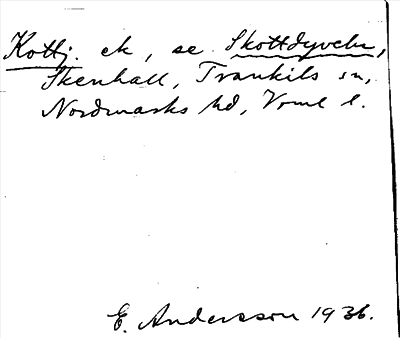 Kottj. ek, se Skottdyveln,
Skenhall, Trankils sn,
Nordmarks hd, Vrml l.
E. Andersson 1936.